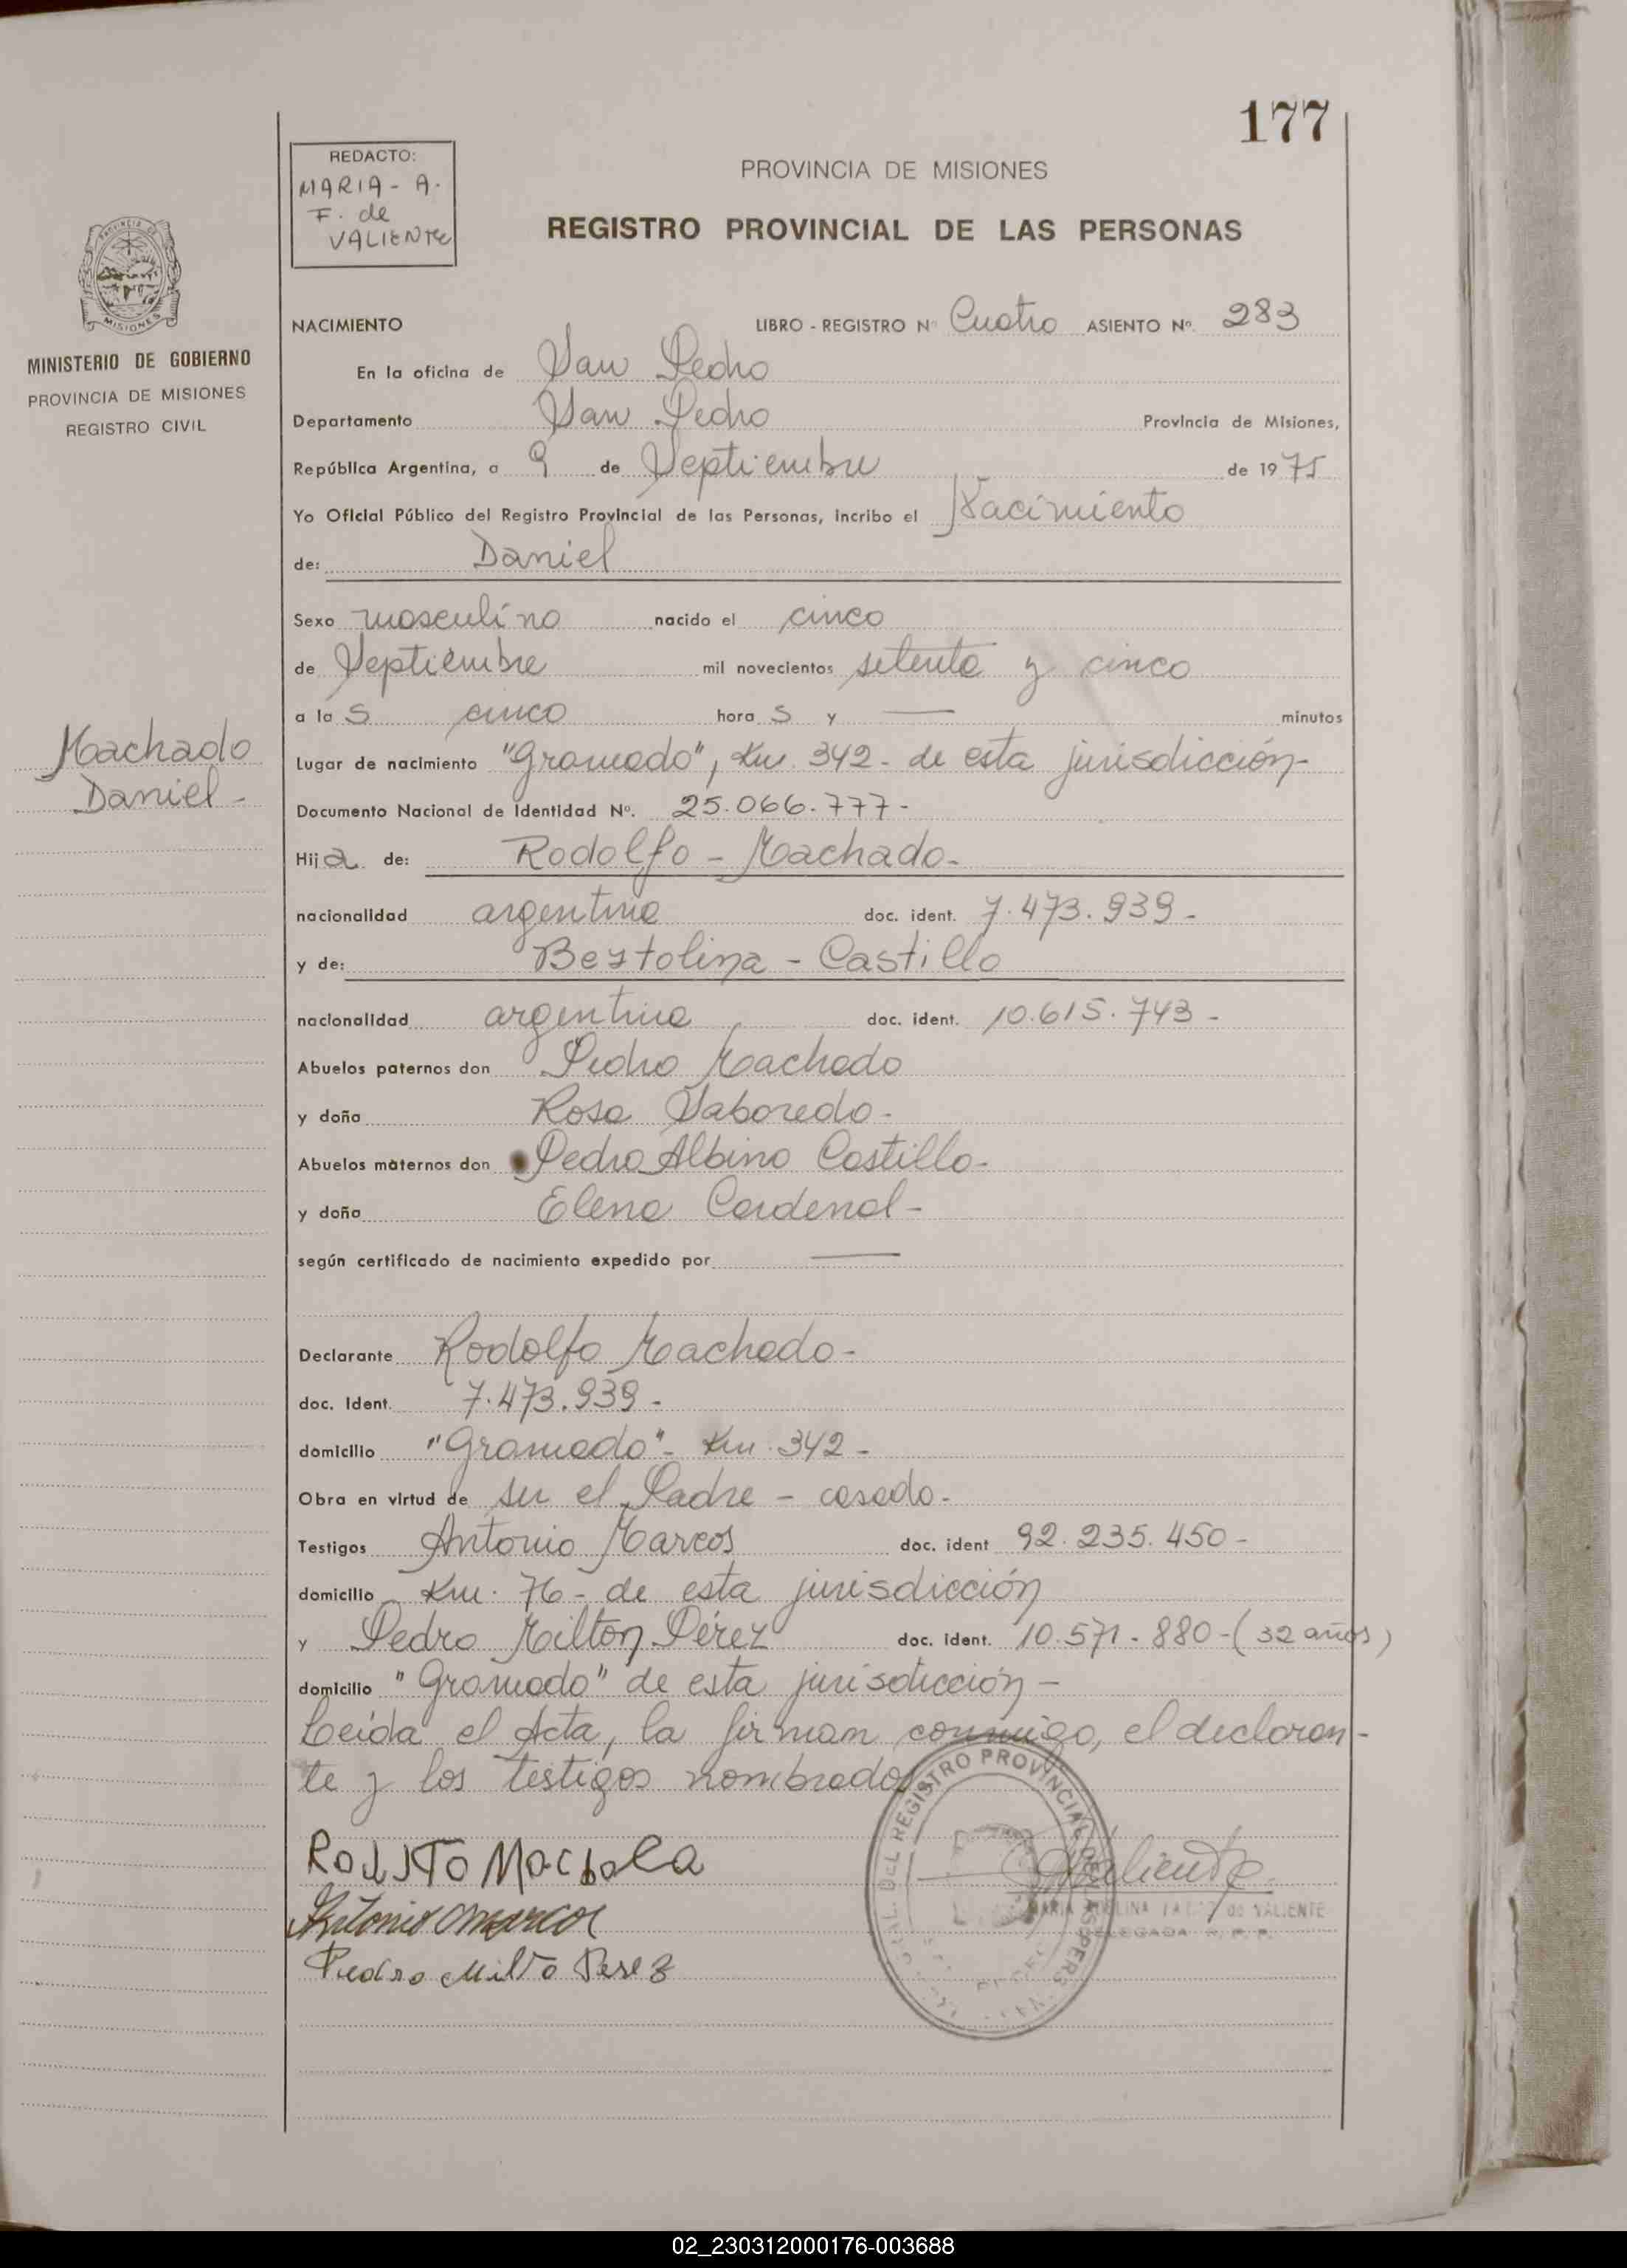 177
REDACTO:
MARIA - A.
F. de
VALIENTE
PROVINCIA DE MISIONES
REGISTRO PROVINCIAL DE LAS PERSONAS
MISIONES
MINISTERIO DE GOBIERNO
PROVINCIA DE MISIONES
REGISTRO CIVIL
NACIMIENTO LIBRO - REGISTRO Nº Cuatro ASIENTO Nº. 283
En la oficina de San Pedro
Departamento San Pedro Provincia de Misiones,
República Argentina, a 9 de Septiembre de 1975
Yo Oficial Público del Registro Provincial de las Personas, incribo el Nacimiento
de: Daniel
Sexo masculino nacido el cinco
de Septiembre mil novecientos setenta y cinco
a la s cinco hora s y — minutos
Machado
Daniel -
Lugar de nacimiento "Gramado", Km. 342 - de esta jurisdicción -
Documento Nacional de Identidad Nº. 25.066.777 -
Hij a de: Rodolfo - Machado -
nacionalidad argentina doc. ident. 7.473.939 -
y de: Bertolina - Castillo
nacionalidad argentina doc. ident. 10.615.743 -
Abuelos paternos don Pedro Machado
y doña Rosa Saboredo -
Abuelos maternos don Pedro Albino Castillo -
y doña Elena Cardenal -
según certificado de nacimiento expedido por —
Declarante Rodolfo Machado -
doc. Ident. 7.473.939 -
domicilio "Gramado" - Km. 342 -
Obra en virtud de ser el Padre - casado -
Testigos Antonio Marcos doc. ident 92.235.450 -
domicilio Km. 76 - de esta jurisdicción
y Pedro Milton Pérez doc. ident. 10.571.880 - (32 años)
domicilio "Gramado" de esta jurisdicción -
Leída el Acta, la firman conmigo, el declaran-
te y los testigos nombrados
DEL REGISTRO PROVINCIAL DE LAS PERS
Valiente
Antonio Marcos
Pedro Milto Perez
VALIENTE
DELEGADA R. P. P.
02_230312000176-003688